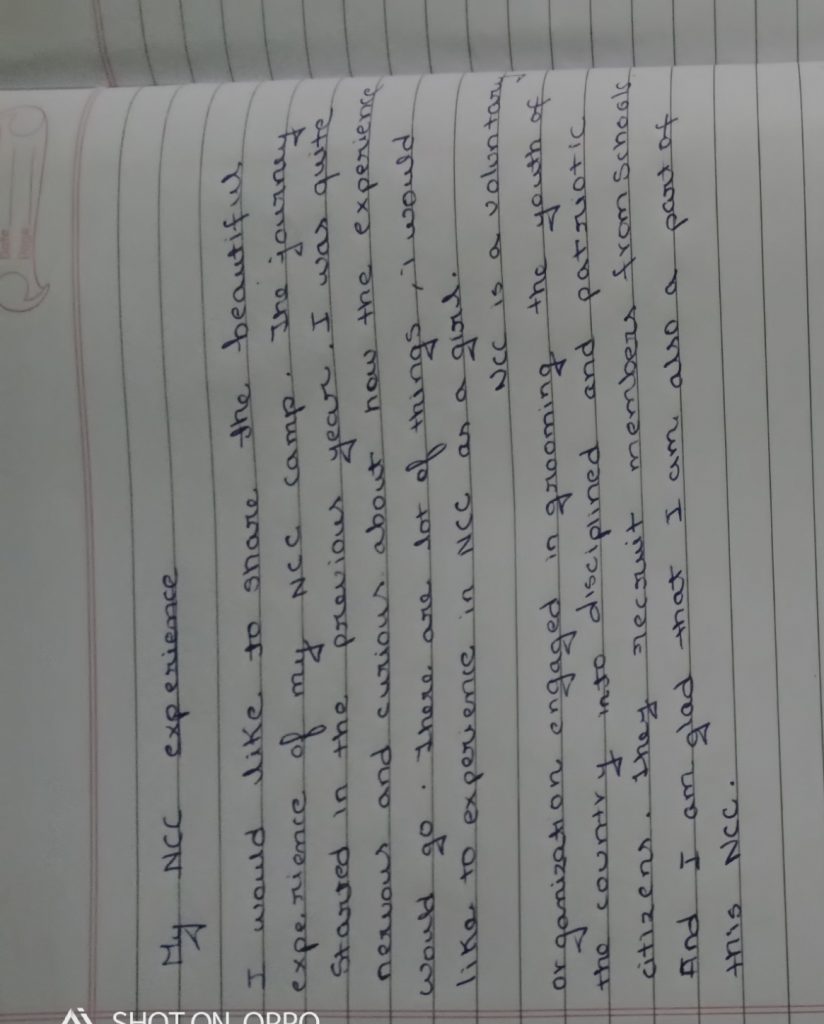 My NCC experience
I would like to share the beautiful
experience of my NCC camp. The journey
Started in the previous year. I was quite
nervous and curious about how the experience
would go. There are lot of things, i would
like to experience in NCC as a girl.
NCC is a voluntary
organization engaged in grooming the youth of
the country into disciplined and patriotic
citizens. They recruit members from Schools
And I am glad that I am also a part of
this NCC.
SHOT ON OPPO